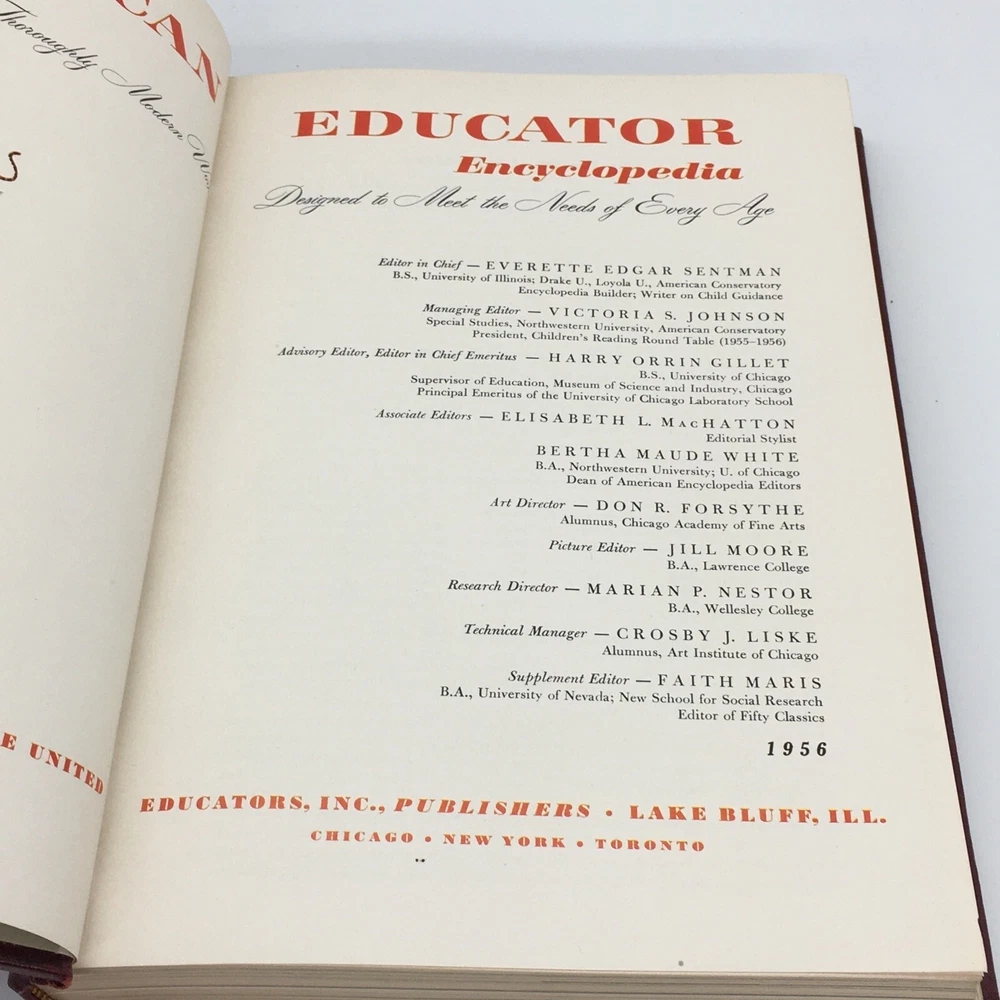 CAN
Thoroughly Modern
S
E UNITED
EDUCATOR
Encyclopedia
Designed to Meet the Needs of Every Age
Editor in Chief — EVERETTE EDGAR SENTMAN
B.S., University of Illinois; Drake U., Loyola U., American Conservatory
Encyclopedia Builder; Writer on Child Guidance
Managing Editor — VICTORIA S. JOHNSON
Special Studies, Northwestern University, American Conservatory
President, Children's Reading Round Table (1955–1956)
Advisory Editor, Editor in Chief Emeritus — HARRY ORRIN GILLET
B.S., University of Chicago
Supervisor of Education, Museum of Science and Industry, Chicago
Principal Emeritus of the University of Chicago Laboratory School
Associate Editors — ELISABETH L. MacHATTON
Editorial Stylist
BERTHA MAUDE WHITE
B.A., Northwestern University; U. of Chicago
Dean of American Encyclopedia Editors
Art Director — DON R. FORSYTHE
Alumnus, Chicago Academy of Fine Arts
Picture Editor — JILL MOORE
B.A., Lawrence College
Research Director — MARIAN P. NESTOR
B.A., Wellesley College
Technical Manager — CROSBY J. LISKE
Alumnus, Art Institute of Chicago
Supplement Editor — FAITH MARIS
B.A., University of Nevada; New School for Social Research
Editor of Fifty Classics
1956
EDUCATORS, INC., PUBLISHERS • LAKE BLUFF, ILL.
CHICAGO • NEW YORK • TORONTO